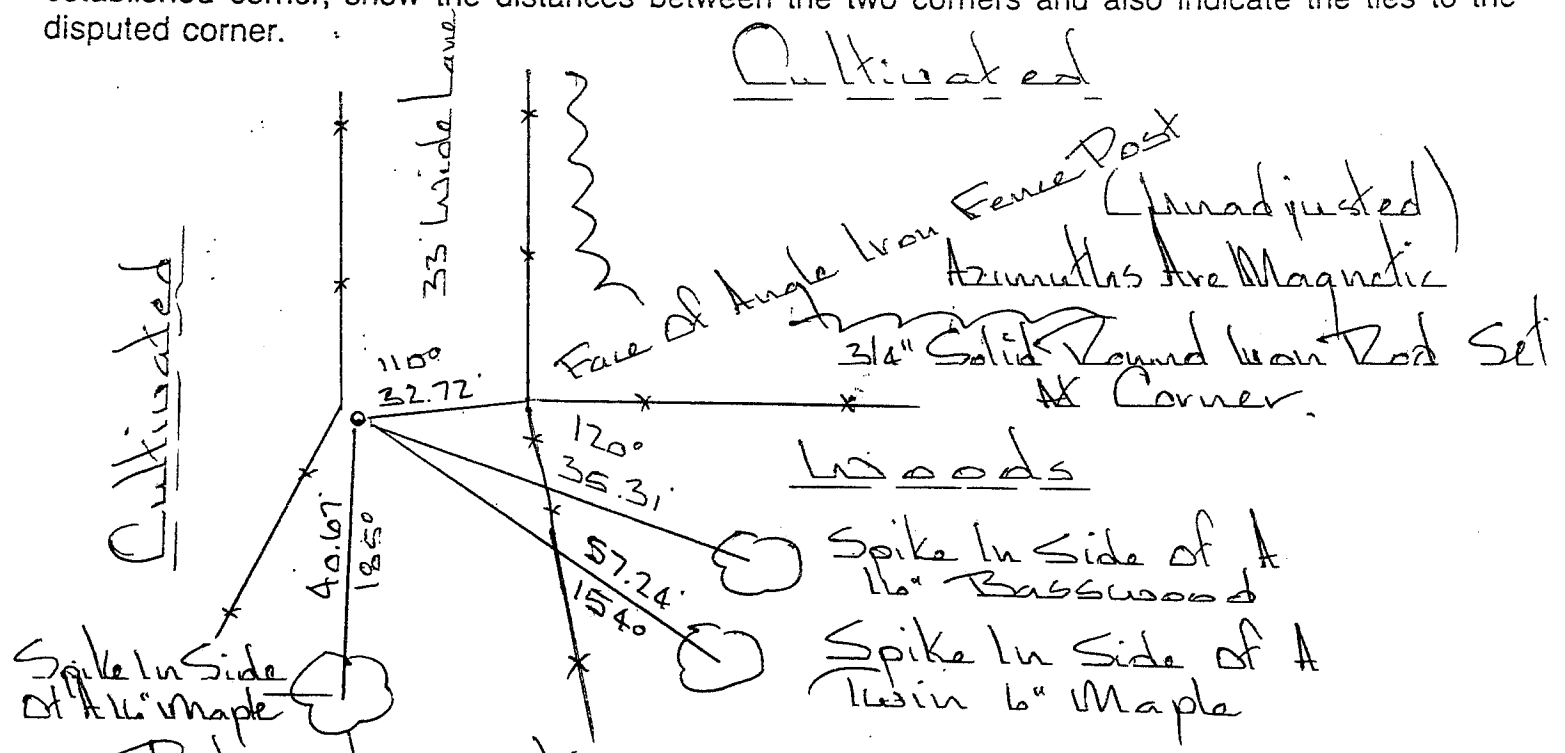 established corner, show the distances between the two corners and also indicate the ties to the
disputed corner.
Cultivated
33' Wide Lane
Face Of Angle Iron Fence Post
(Unadjusted)
Azimuths Are Magnetic
3/4" Solid Round Iron Rod Set
At Corner.
Cultivated
110°
32.72'
120°
35.31'
Woods
40.67'
185°
57.24'
154°
Spike In Side Of A
16" Basswood
Spike In Side Of A
Twin 6" Maple
Spike In Side
Of A 16" Maple